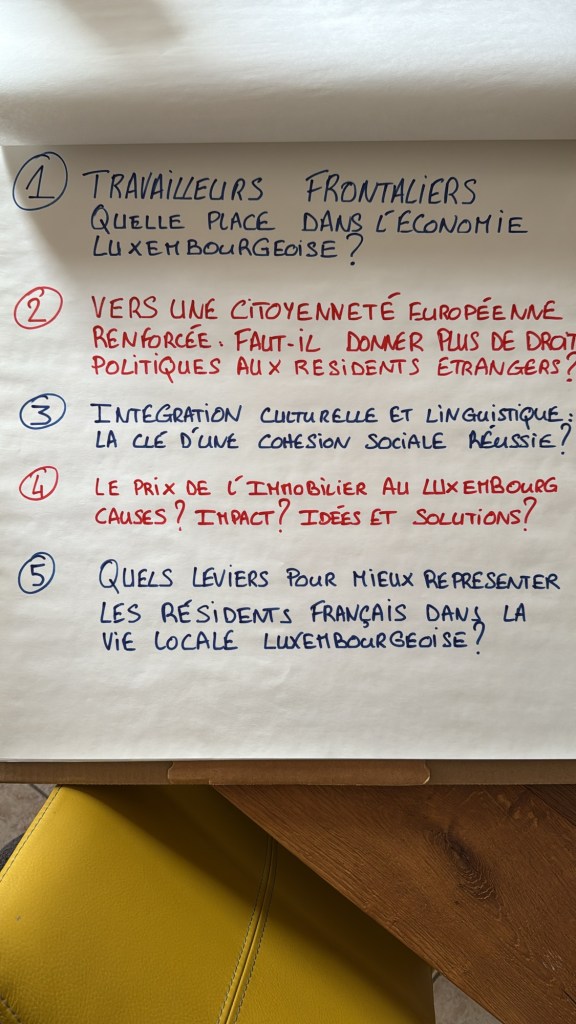 1 TRAVAILLEURS FRONTALIERS
QUELLE PLACE DANS L'ECONOMIE
LUXEMBOURGEOISE?
2 VERS UNE CITOYENNETÉ EUROPÉENNE
RENFORCÉE. FAUT-IL DONNER PLUS DE DROIT
POLITIQUES AUX RESIDENTS ETRANGERS?
3 INTEGRATION CULTURELLE ET LINGUISTIQUE:
LA CLE D'UNE COHESION SOCIALE RÉUSSIE?
4 LE PRIX DE L'IMMOBILIER AU LUXEMBOURG
CAUSES? IMPACT? IDÉES ET SOLUTIONS?
5 QUELS LEVIERS POUR MIEUX REPRESENTER
LES RÉSIDENTS FRANÇAIS DANS LA
VIE LOCALE LUXEMBOURGEOISE?